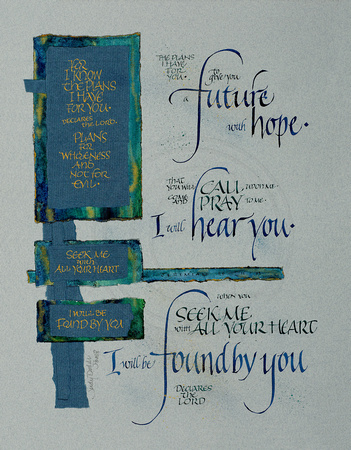 FOR
I KNOW
THE PLANS
I HAVE
FOR YOU.
DECLARES
THE LORD.
PLANS
FOR
WHOLENESS
AND
NOT FOR
EVIL.
SEEK ME
with
ALL YOUR HEART
I WILL BE
FOUND BY YOU
THE PLANS
I HAVE
FOR
YOU.
TO
give you
a future
with hope.
THAT
YOU WILL
COME
AND
CALL UPON ME.
PRAY TO ME.
I will hear you.
WHEN YOU
SEEK ME
with ALL YOUR HEART
I will be found by you
DECLARES
THE
LORD